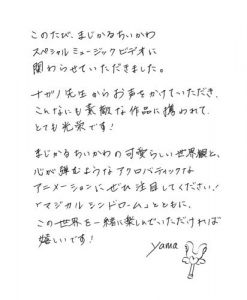 このたび、まじかるちいかわ
スペシャルミュージックビデオに
関わらせていただきました。
ナガノ先生からお声をかけていただき、
こんなにも素敵な作品に携われて、
とても光栄です！
まじかるちいかわの可愛らしい世界観と、
心が弾むようなアクロバティックな
アニメーションにぜひ注目してください！
「マジカルシンドローム」とともに、
この世界を一緒に楽しんでいただければ
嬉しいです！
yama